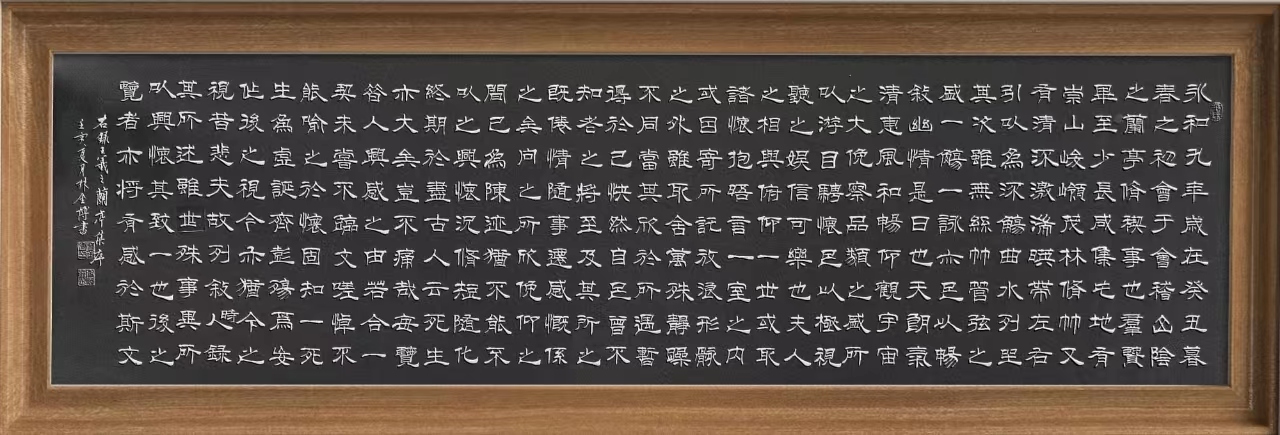 永和九年歲在癸丑暮
春之初會于會稽山陰
之蘭亭脩禊事也羣賢
畢至少長咸集此地有
崇山峻嶺茂林脩竹又
有清流激湍暎帶左右
引以為流觴曲水列坐
其次雖無絲竹管弦之
盛一觴一詠亦足以暢
敘幽情是日也天朗氣
清惠風和暢仰觀宇宙
之大俛察品類之盛所
以游目騁懷足以極視
聽之娛信可樂也夫人
之相與俯仰一世或取
諸懷抱晤言一室之內
或因寄所託放浪形骸
之外雖取舍萬殊靜躁
不同當其欣於所遇暫
得於己快然自足曾不
知老之將至及其所之
既倦情隨事遷感慨係
之矣向之所欣俛仰之
間已為陳迹猶不能不
以之興懷況脩短隨化
終期於盡古人云死生
亦大矣豈不痛哉每覽
昔人興感之由若合一
契未嘗不臨文嗟悼不
能喻之於懷固知一死
生為虛誕齊彭殤為妄
作後之視今亦猶今之
視昔悲夫故列敘時人錄
其所述雖世殊事異所
以興懷其致一也後之
覽者亦將有感於斯文
右錄王羲之蘭亭集序
壬寅夏月林金書